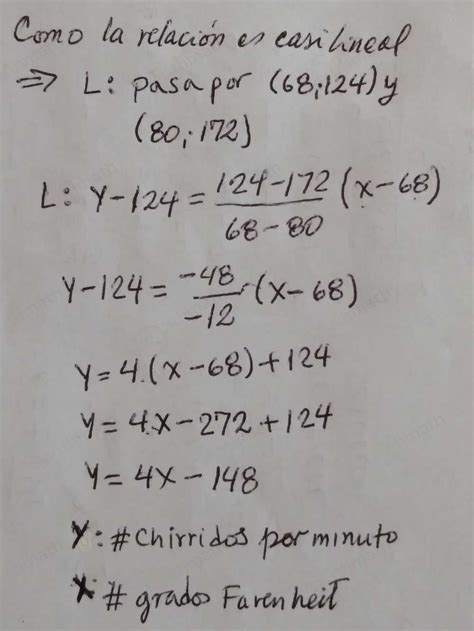 Como la relación es casi lineal
⇒ L: pasa por (68;124) y
(80;172)
L: Y-124 = \frac{124-172}{68-80} (x-68)
Y-124 = \frac{-48}{-12} (x-68)
y = 4.(x-68)+124
y = 4.x-272+124
y = 4x-148
y: #Chirridos por minuto
x: # grados Farenheit